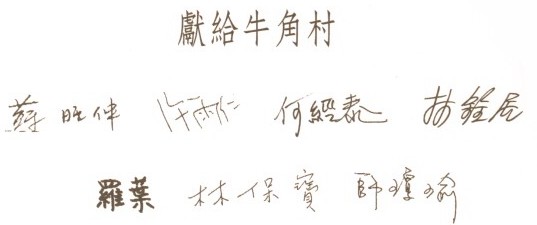 獻給牛角村
蔡旺伸 許雨仁 何經泰 林銓居
羅葉 林保寶 師瓊瑜